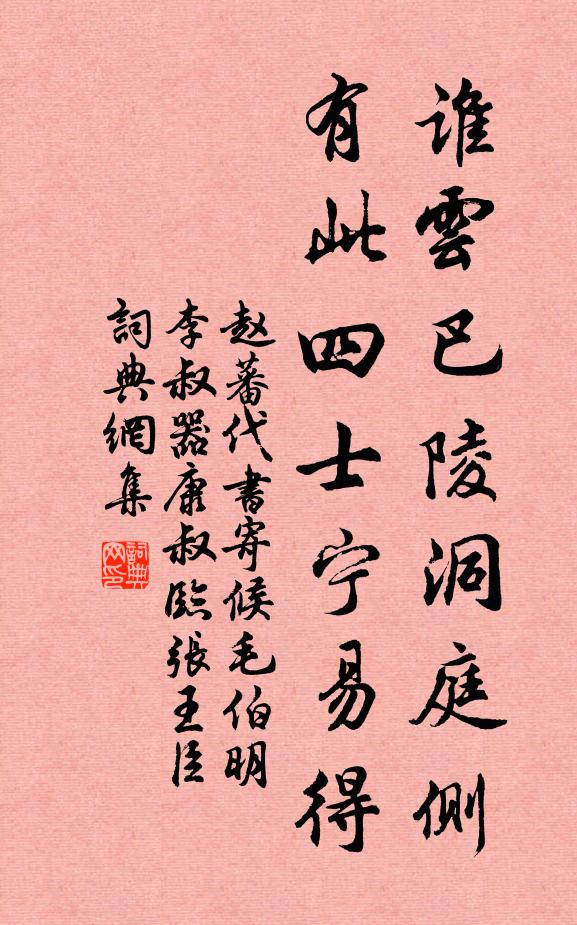 誰雲巴陵洞庭側
有此四士宁易得
赵蕃代書寄候毛伯明
李叔器康叔臨張王臣
詞典網集
詞典网印